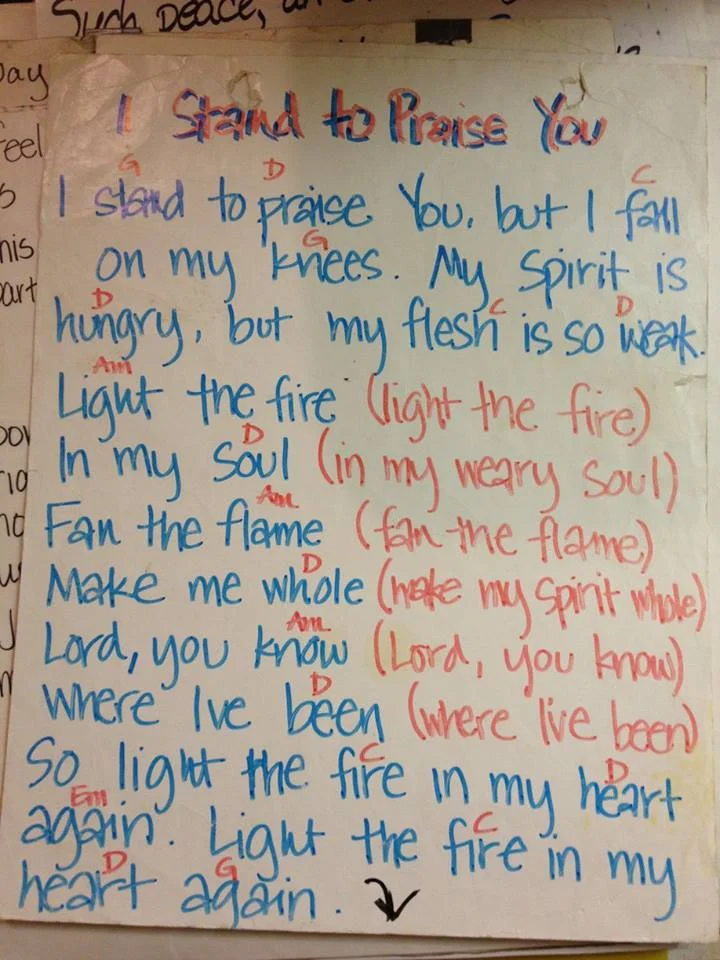 Such peace,
I Stand to Praise You
G D C
I stand to praise You, but I fall
G
on my knees. My Spirit is
D C D
hungry, but my flesh is so weak.
Am
Light the fire (light the fire)
D
In my soul (in my weary soul)
Am
Fan the flame (fan the flame)
D
Make me whole (make my Spirit whole)
Am
Lord, you know (Lord, you know)
D
Where Ive been (where Ive been)
C D
So light the fire in my heart
Em C
again. Light the fire in my
D G
heart again.